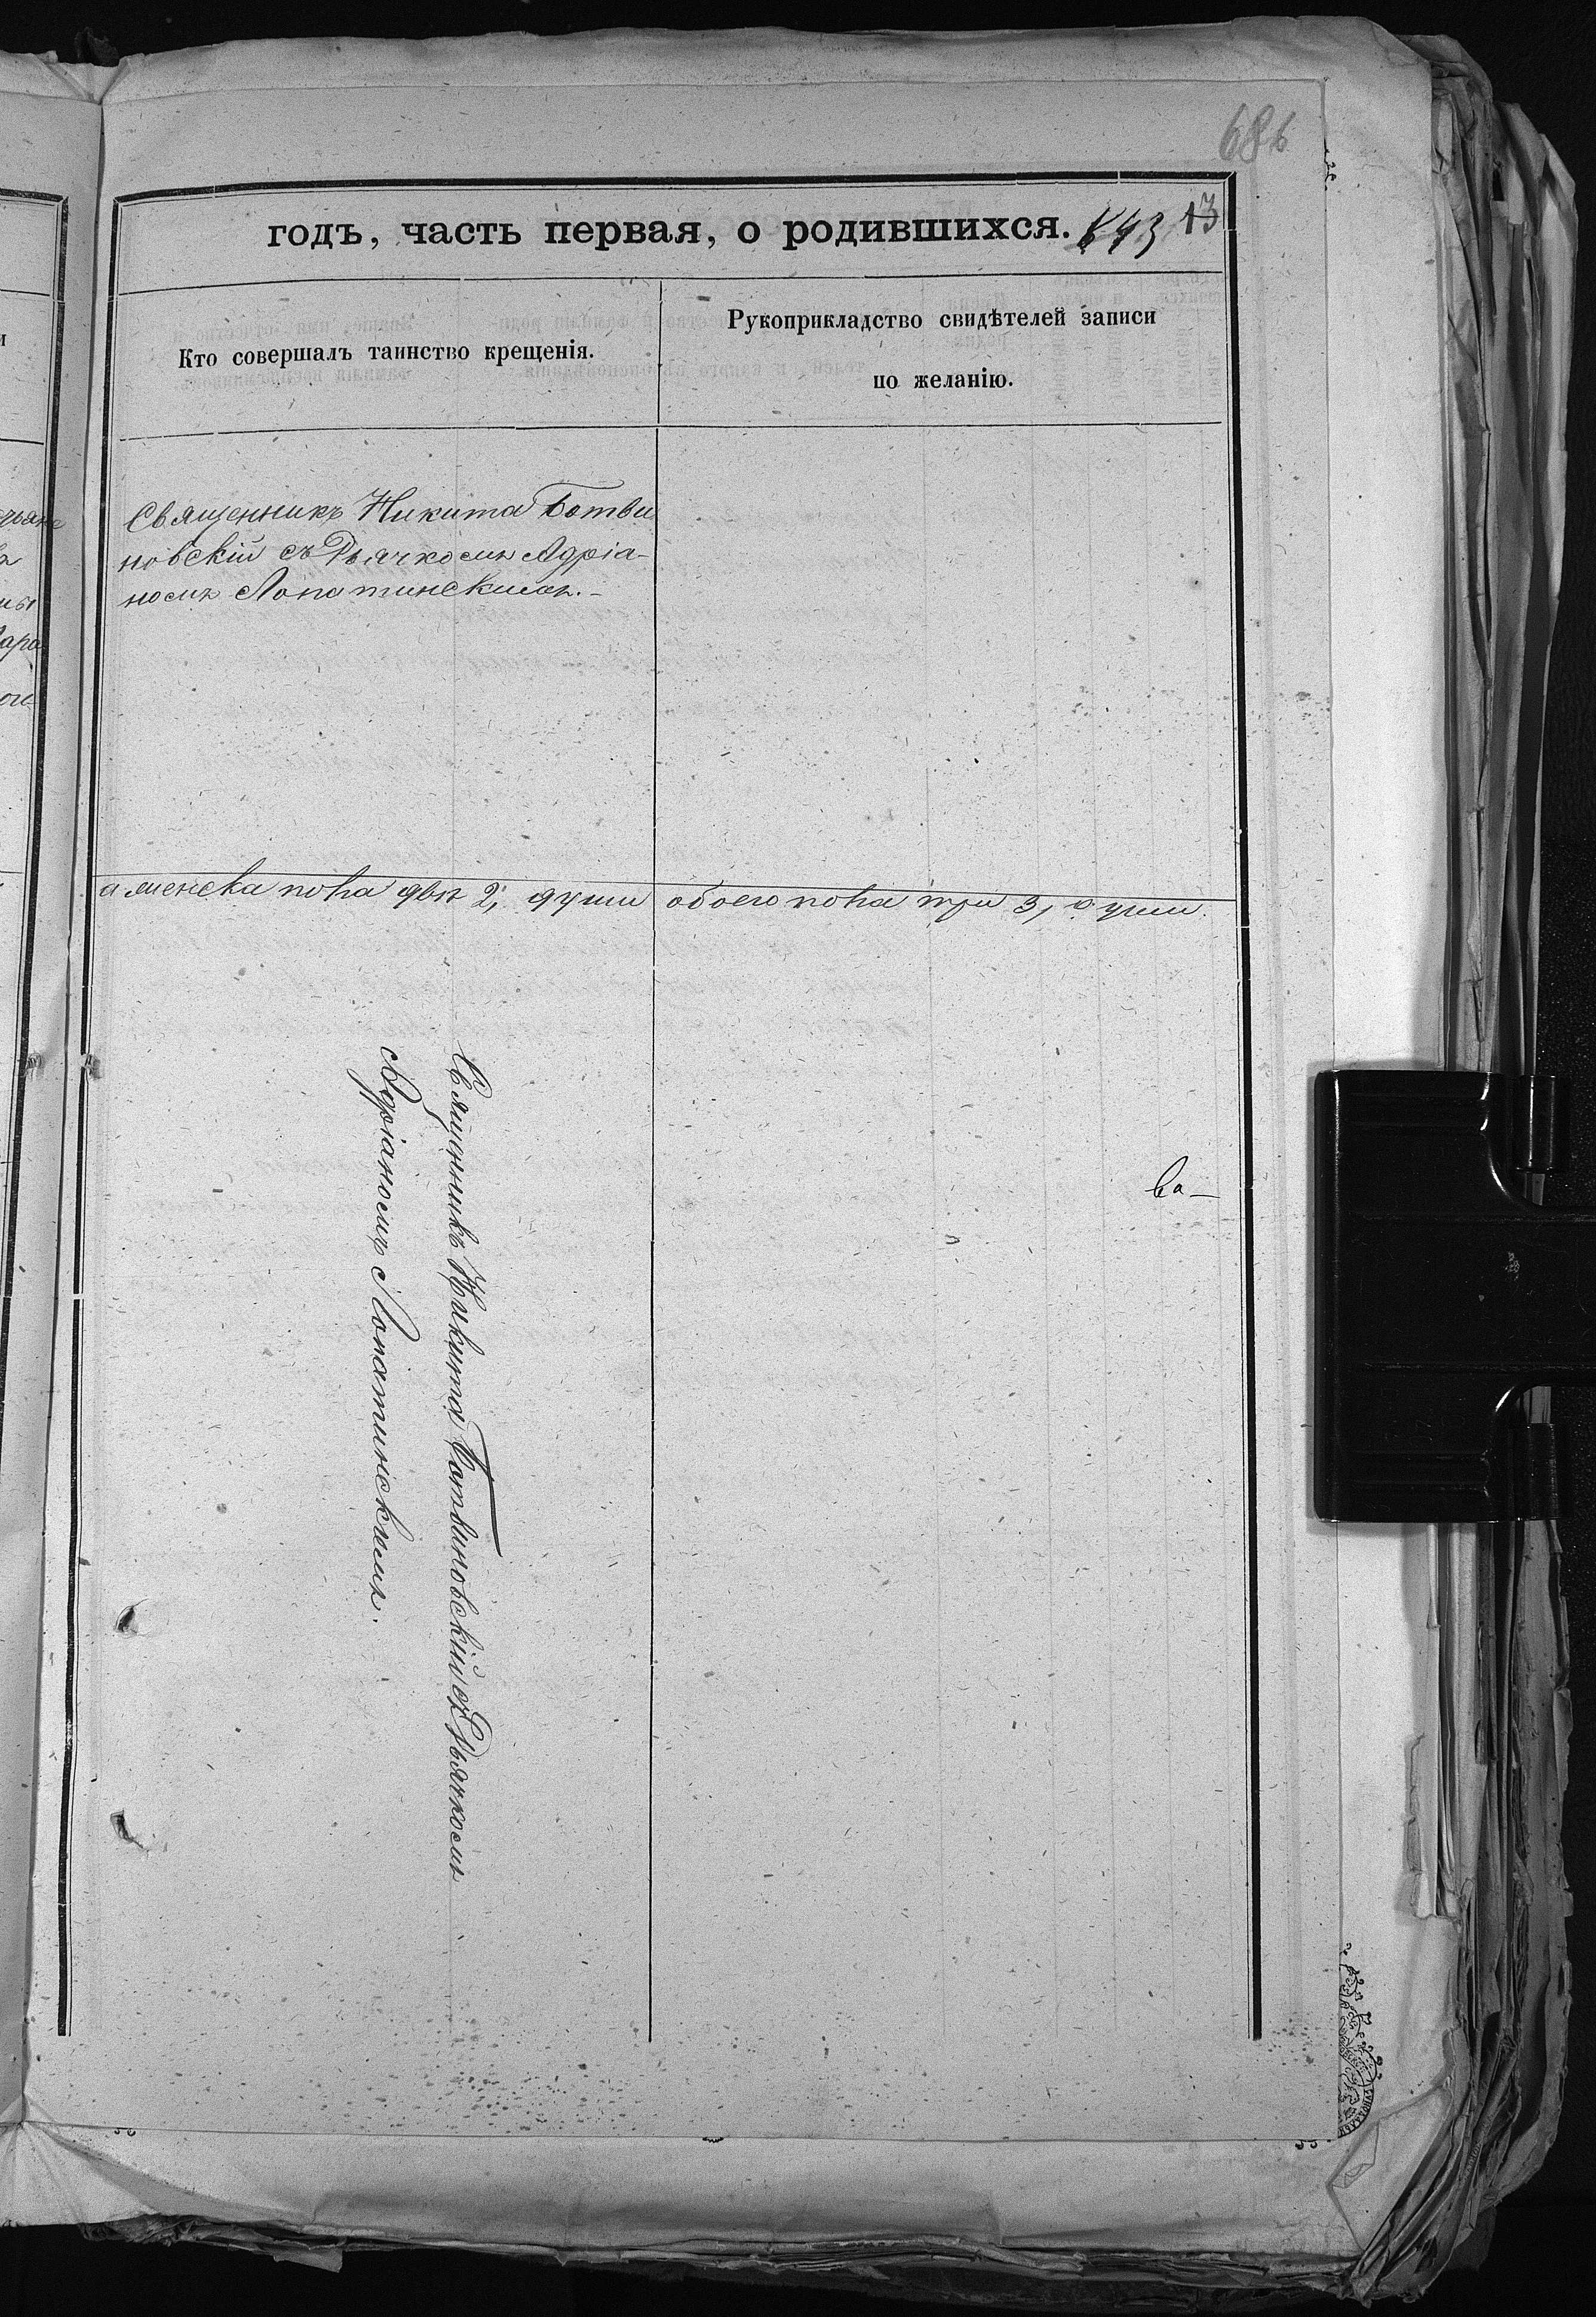 686
годъ, часть первая, о родившихся. 643 13
Кто совершалъ таинство крещенія.
Рукоприкладство свидѣтелей записи
по желанію.
Священникъ Никита Ботви
новскій съ Дьячкомъ Адріа-
номъ Лопатинскимъ.-
а женска пола двѣ 2, души обоего пола три 3, души.
Священникъ Никита Ботвиновскій съ Дьячкомъ
Адріаномъ Лопатинскимъ.
ва-